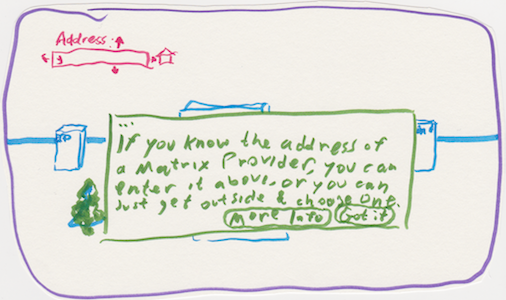 Address:
...
If you know the address of
a Matrix Provider, you can
enter it above, or you can
just get outside & choose one.
More Info Got it